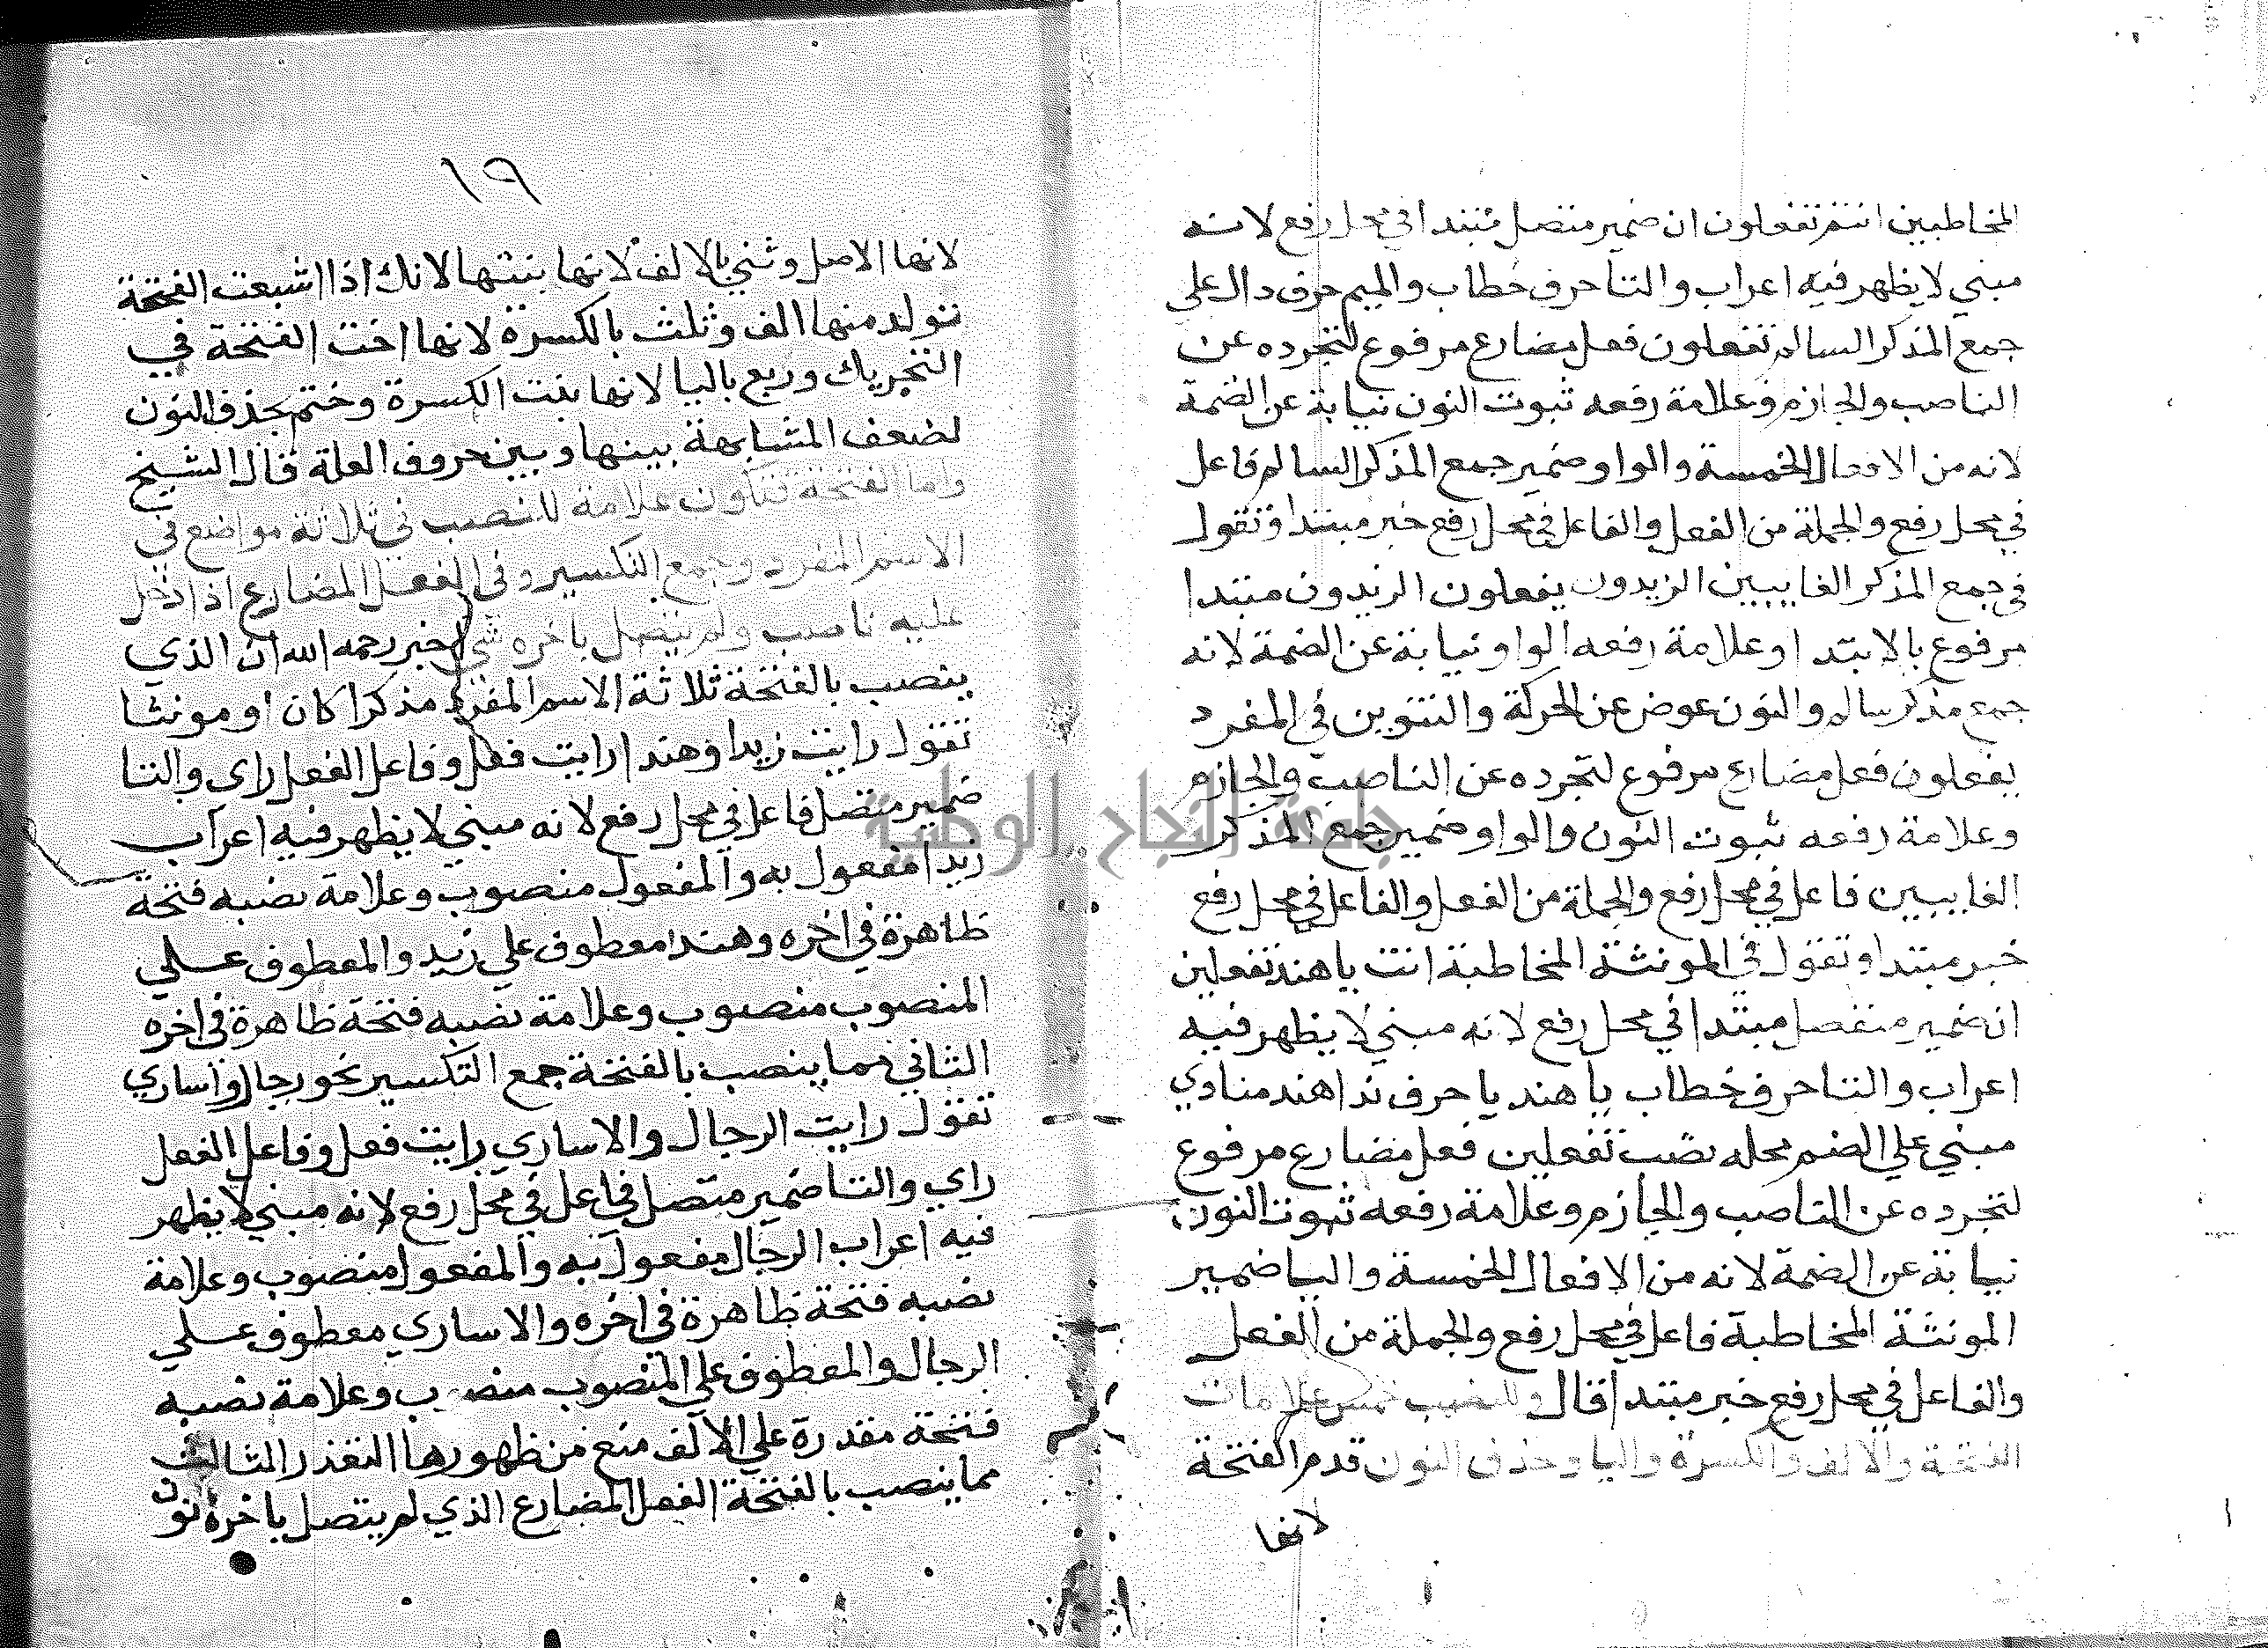 المخاطبين انتم تفعلون ان ضمير منفصل مبتدا في محل رفع لانه
مبني لا يظهر فيه اعراب والتا حرف خطاب والميم حرف دال علي
جمع المذكر السالم تفعلون فعل مضارع مرفوع لتجرده عن
الناصب والجازم وعلامة رفعه ثبوت النون نيابة عن الضمة
لانه من الافعال الخمسة والواو ضمير جمع المذكر السالم فاعل
في محل رفع والجملة من الفعل والفاعل في محل رفع خبر مبتدا وتقول
في جمع المذكر الغايبين الزيدون يفعلون الزيدون مبتدا
مرفوع بالابتدا وعلامة رفعه الواو نيابة عن الضمة لانه
جمع مذكر سالم والنون عوض عن الحركة والتنوين في المفرد
يفعلون فعل مضارع مرفوع لتجرده عن الناصب والجازم
وعلامة رفعه ثبوت النون والواو ضمير جمع المذكر
الغايبين فاعل في محل رفع والجملة من الفعل والفاعل في محل رفع
خبر مبتدا وتقول في المونثة المخاطبة انت ياهند تفعلين
ان ضمير منفصل مبتدا في محل رفع لانه مبني لا يظهر فيه
اعراب والتا حرف خطاب ياهند يا حرف ندا هند منادي
مبني علي الضم محله نصب تفعلين فعل مضارع مرفوع
لتجرده عن الناصب والجازم وعلامة رفعه ثبوت النون
نيابة عن الضمة لانه من الافعال الخمسة واليا ضمير
المونثة المخاطبة فاعل في محل رفع والجملة من الفعل
والفاعل في محل رفع خبر مبتدا قال وللنصب خمس علامات
الفتحة والالف والكسرة واليا وحذف النون قدم الفتحة
لانها
١٩
لانها الاصل وثني بالالف لانها بنتها لانك اذا اشبعت الفتحة
تتولد منها الف وثلث بالكسرة لانها اخت الفتحة في
التحريك وربع باليا لانها بنت الكسرة وختم بحذف النون
لضعف المشابهة بينها وبين حروف العلة قال الشيخ
واما الفتحة فتكون علامة للنصب في ثلاثة مواضع في
الاسم المفرد وجمع التكسير وفي الفعل المضارع اذا دخل
عليه ناصب ولم يتصل باخره شي اخبر رحمه الله ان الذي
ينصب بالفتحة ثلاثة الاسم المفرد مذكرا كان او مونثا
تقول رايت زيدا وهندا رايت فعل وفاعل الفعل راي والتا
ضمير متصل فاعل في محل رفع لانه مبني لا يظهر فيه اعراب
زيدا مفعول به والمفعول منصوب وعلامة نصبه فتحة
ظاهرة في اخره وهندا معطوف علي زيد والمعطوف علي
المنصوب منصوب وعلامة نصبه فتحة ظاهرة في اخره
الثاني مما ينصب بالفتحة جمع التكسير نحو رجال واساري
تقول رايت الرجال والاساري رايت فعل وفاعل الفعل
راي والتا ضمير متصل فاعل في محل رفع لانه مبني لا يظهر
فيه اعراب الرجال مفعول به والمفعول منصوب وعلامة
نصبه فتحة ظاهرة في اخره والاساري معطوف علي
الرجال والمعطوف علي المنصوب منصوب وعلامة نصبه
فتحة مقدرة علي الالف منع من ظهورها التعذر الثالث
مما ينصب بالفتحة الفعل المضارع الذي لم يتصل باخره نون
جامعة النجاح الوطنية